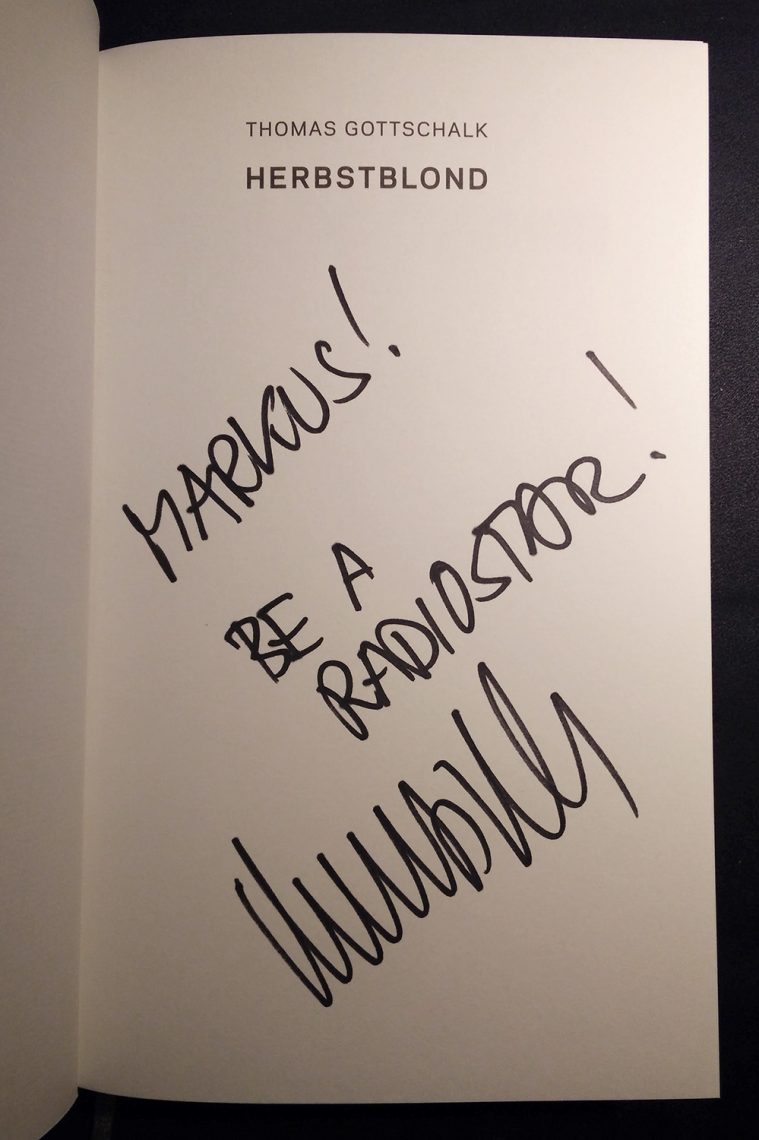 THOMAS GOTTSCHALK
HERBSTBLOND
MARKUS!
BE A
RADIOSTAR!